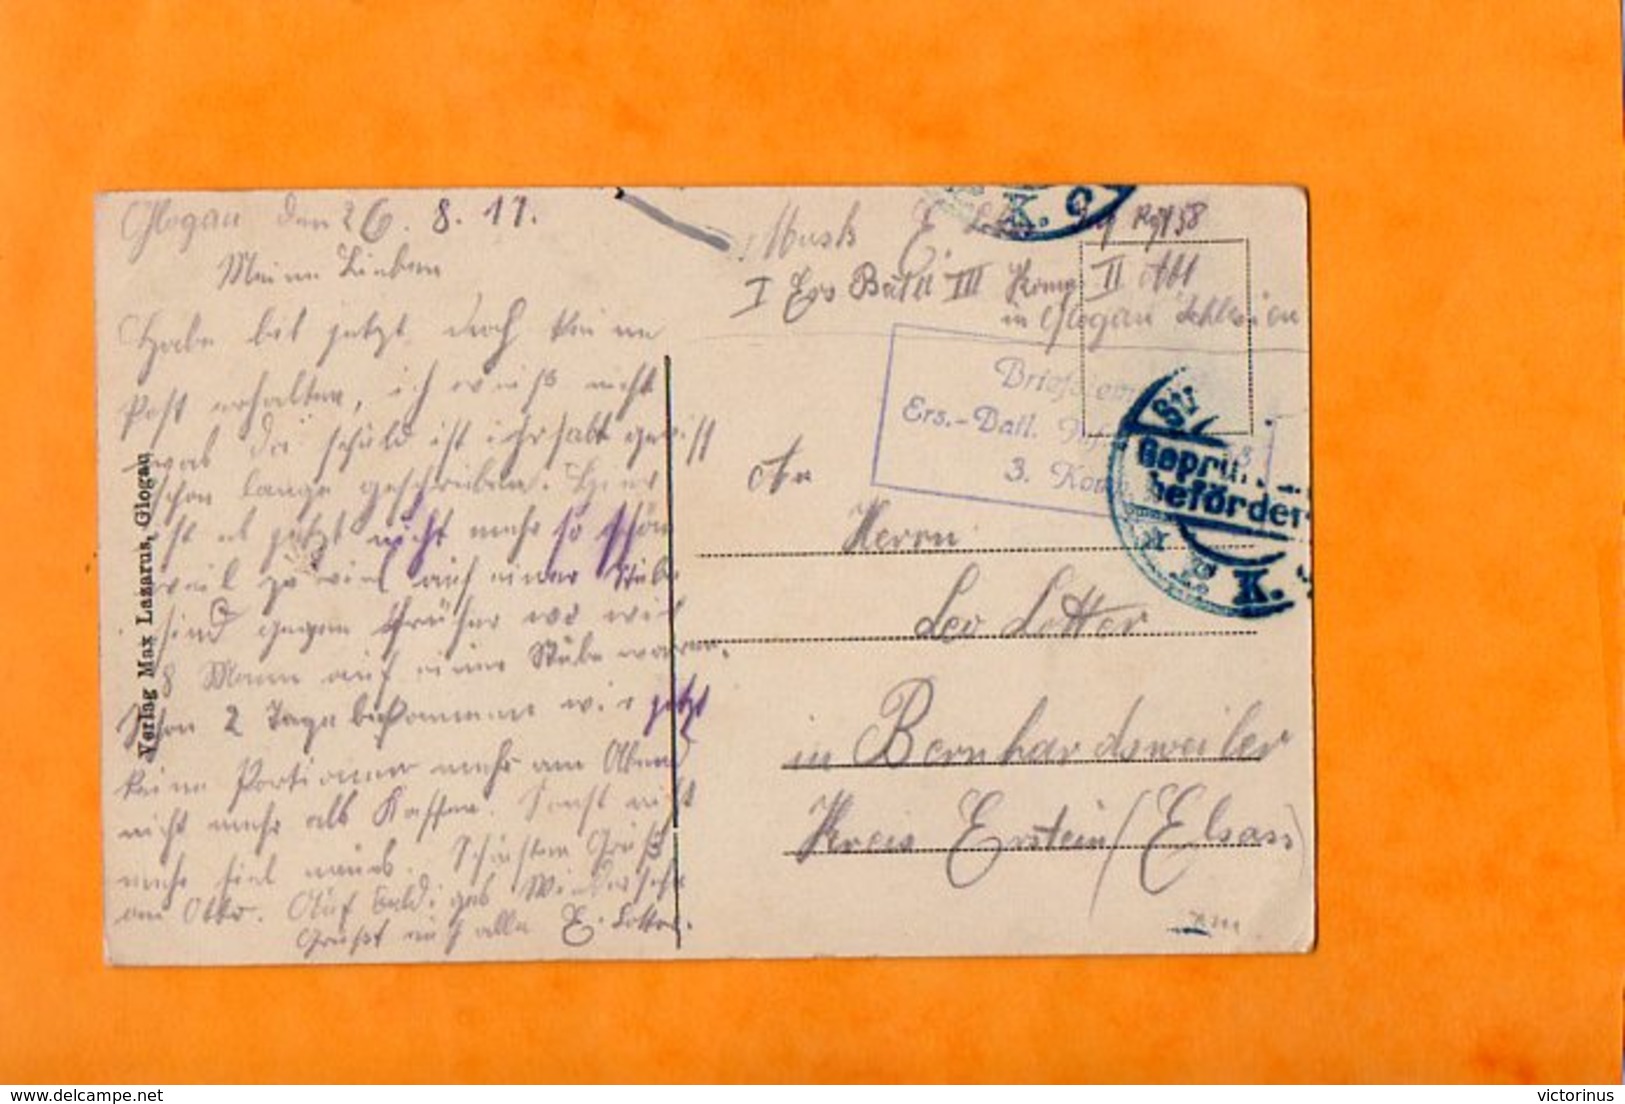 Glogau den 26.8.17.
Meine Lieben
Habe bis jetzt noch keine
Post erhalten, ich weiß nicht
was die schuld ist ihr habt gewiss
schon lange geschrieben. Hier
ist es jetzt nicht mehr so schön
weil zu viel auf einer Stube
sind gegen früher wo wir
8 Mann auf einer Stube waren.
Schon 2 Tage bekommen wir jetzt
keine Portionen mehr am Abend
nicht mehr als Kaffee. Sonst nicht
mehr viel neues. Schönsten Gruß
an Otto. Auf baldiges Wiedersehn
Grüßt euch alle E. Lotter.
Verlag Max Lazarus, Glogau
K.
Musk E. Rgt 58
I Ers Batl III Komp II Abt
in Glogau Schlesien
Briefstem
Ers.-Batl.
3. Komp
Geprüft
befördert
K.
An
Herrn
Leo Lotter
in Bernhardsweiler
Kreis Erstein (Elsass)
delcampe.net
victorinus